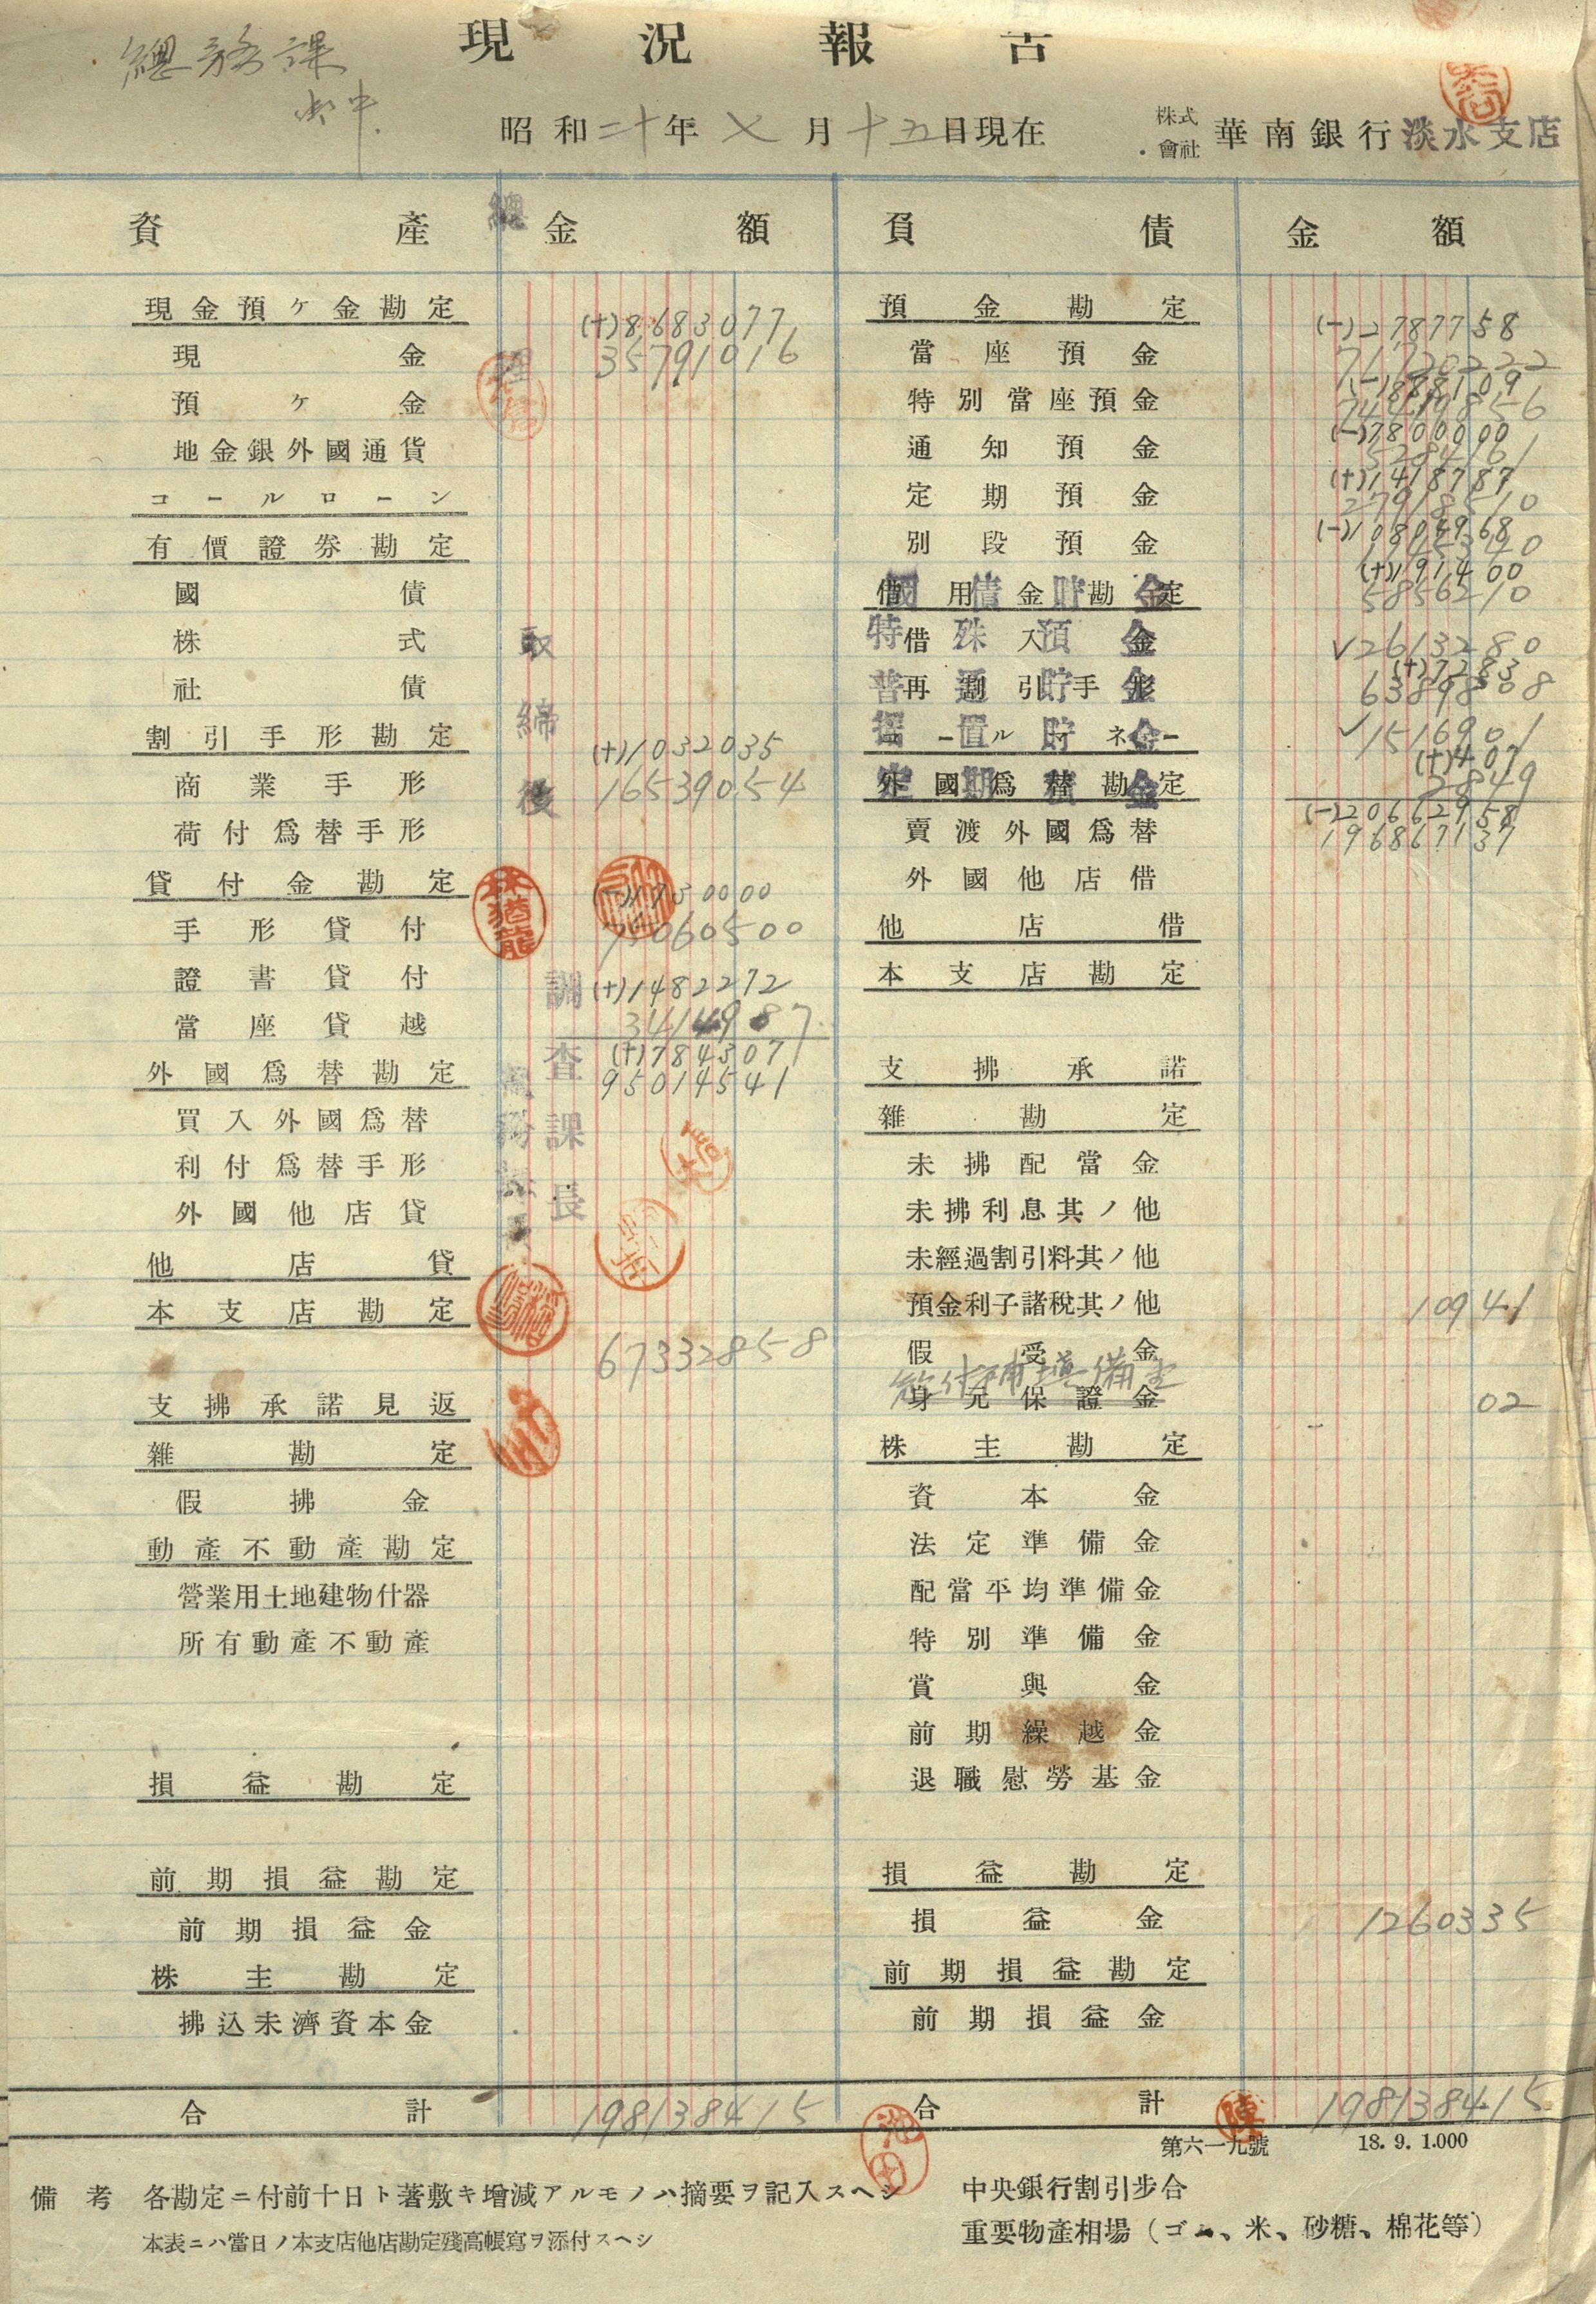 現況報告
總務課
御中
昭和二十年七月十五日現在
株式會社 華南銀行淡水支店
資產 金額 負債 金額
總
現金預ケ金勘定
現金 (+)8683077
35791016
預ケ金
地金銀外國通貨
コールローン
有價證券勘定
國債
株式
社債
取締役
割引手形勘定
商業手形 (+)1032035
16539054
荷付爲替手形
貸付金勘定
手形貸付 (-)1730000
75060500
證書貸付
當座貸越 (+)1482272
3414987
外國爲替勘定 (+)784307
95014541
買入外國爲替
利付爲替手形
外國他店貸
調查課長
林猶龍
他店貸
本支店勘定
67332858
支拂承諾見返
雜勘定
假拂金
動產不動產勘定
營業用土地建物什器
所有動產不動產
損益勘定
前期損益勘定
前期損益金
株主勘定
拂込未濟資本金
合計 198138415
預金勘定
當座預金 (-)2787758
71120222
特別當座預金 (-)1888109
74419856
通知預金 (-)7800000
5284161
定期預金 (+)1418787
27918510
別段預金 (-)10804968
借用金勘定 (+)191400
5856210
國債貯金
借入金 ✓2613280
特殊預金
再割引手形 (+)7283
普通貯金
コールマネー ✓1516901
据置貯金
外國爲替勘定 (+)407
2849
定期積金
賣渡外國爲替 (-)20662958
196867137
外國他店借
他店借
本支店勘定
支拂承諾
雜勘定
未拂配當金
未拂利息其ノ他
未經過割引料其ノ他
預金利子諸稅其ノ他 10941
假受金
身元保證金 02
株主勘定
資本金
法定準備金
配當平均準備金
特別準備金
賞與金
前期繰越金
退職慰勞基金
損益勘定
損益金 1260335
前期損益勘定
前期損益金
合計 陳 198138415
第六一九號 18. 9. 1.000
池田
備考 各勘定ニ付前十日ト著敷キ增減アルモノハ摘要ヲ記入スヘシ
本表ニハ當日ノ本支店他店勘定殘高帳寫ヲ添付スヘシ
中央銀行割引步合
重要物產相場(ゴム、米、砂糖、棉花等)